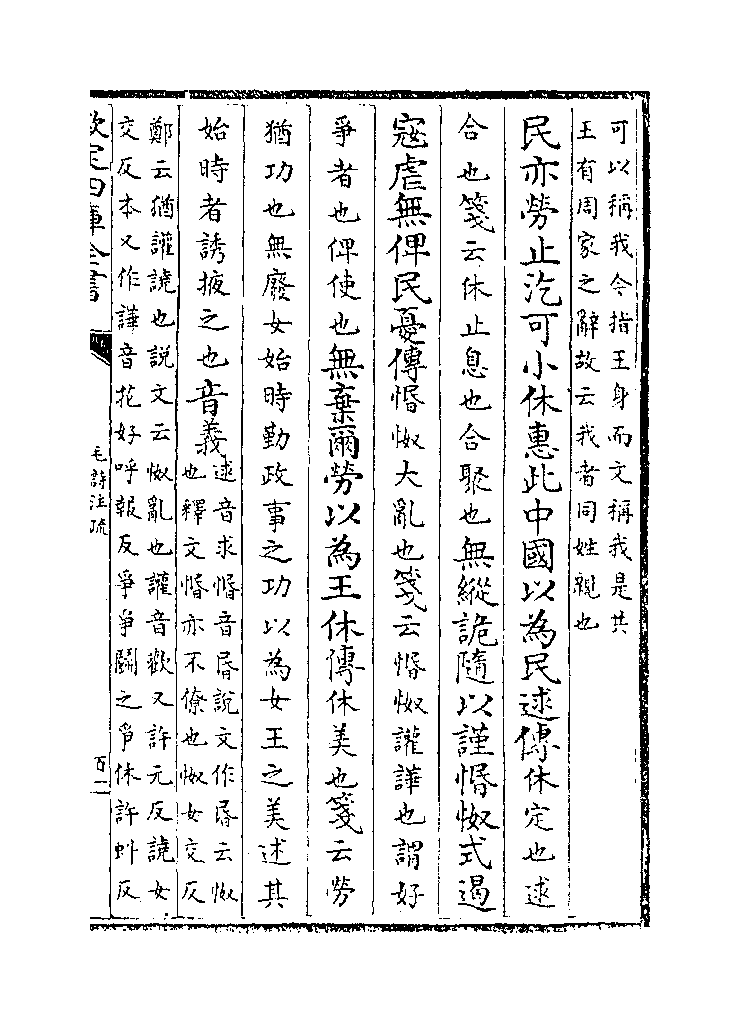 可以稱我今指王身而文稱我是共
王有周家之辭故云我者同姓親也
民亦勞止汔可小休惠此中國以為民逑傳休定也逑
合也箋云休止息也合聚也無縱詭隨以謹惽怓式遏
寇虐無俾民憂傳惽怓大亂也箋云惽怓讙譁也謂好
爭者也俾使也無棄爾勞以為王休傳休美也箋云勞
猶功也無廢女始時勤政事之功以為女王之美述其
始時者誘掖之也音義
逑音求惽音昬說文作昬云怓
也釋文惽亦不僚也怓女交反
鄭云猶讙譊也說文云怓亂也讙音歡又許元反譊女
交反本又作譁音花好呼報反爭爭鬭之爭休許虯反
欽定四庫全書
毛詩注疏
百一